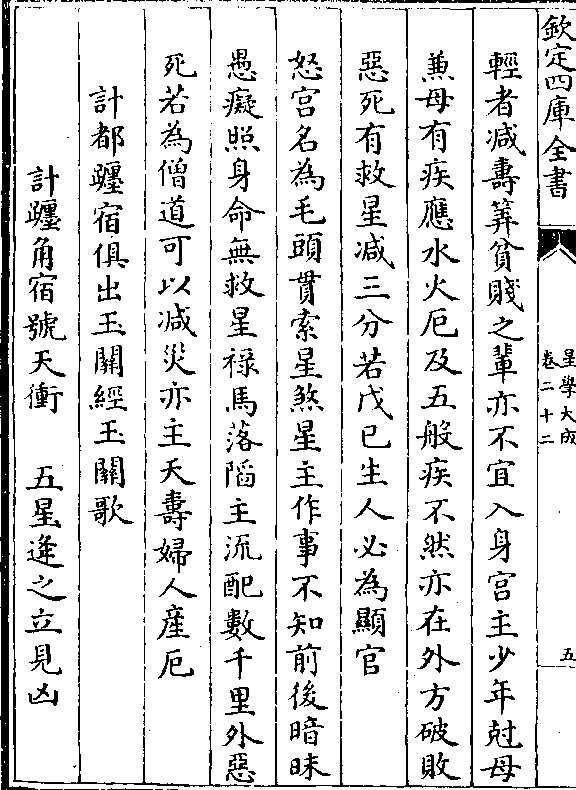 欽定四庫全書
星學大成
卷二十二
五
輕者减壽筭貧賤之輩亦不宜入身宫主少年尅母
兼母有疾應水火厄及五般疾不然亦在外方破敗
惡死有救星减三分若戊已生人必為顯官
怒宫名為毛頭貫索星煞星主作事不知前後暗昧
愚癡照身命無救星禄馬落陷主流配數千里外惡
死若為僧道可以减災亦主夭壽婦人産厄
計都躔宿俱出玉關經玉關歌
計躔角宿號天衝　五星逢之立見凶